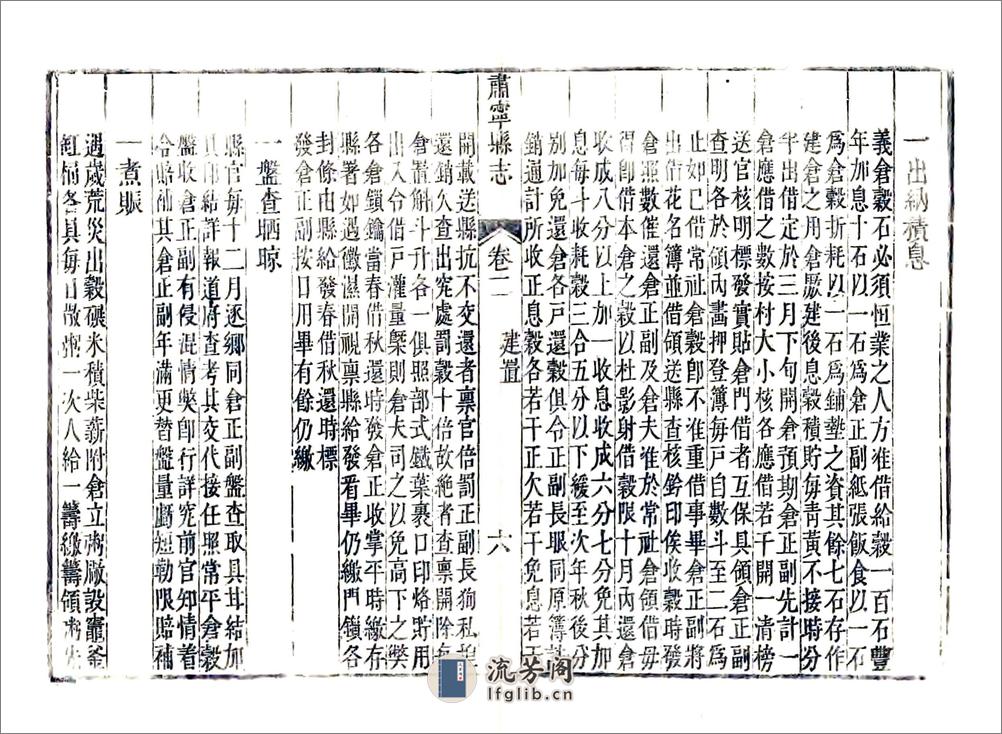 一出納積息
義倉穀石必須恒業之人方准借給穀一百石豐
年加息十石以一石為倉正副紙張飯食以一石
為倉穀折耗以一石為鋪墊之資其餘七石存作
建倉之用倉厫建後息穀積貯每靑黃不接時分
半出借定於三月下旬開倉預期倉正副先計一
倉應借之數按村大小核各應借若干開一清榜
送官核明標發實貼倉門借者互保具領倉正副
查明各於領內畵押登簿每戸自數斗至二石為
止如已借常社倉穀卽不准重借事畢倉正副將
出借花名簿並借領送縣查核鈐印俟收穀時發
倉照數催還倉正副及倉夫准於常社倉領借毋
得卽借本倉之穀以杜影射借穀限十月內還倉
收成八分以上加一收息收成六分七分免其加
息每斗收耗穀三合五分以下緩至次年秋後分
別加免還倉各戸還穀俱令正副長眼同原簿註
銷通計所收正息穀各若干正欠若干免息若干
肅寧縣志
卷二
建置
六
開載送縣抗不交還者稟官倍罰正副長狥私
還銷久查出究處罰穀十倍故絶者查稟開除每
倉置斛斗升各一俱照部式鐵葉裹口印烙貯用
出入令借戸灌量槩則倉夫司之以免高下之弊
各倉鎖鑰當春借秋還時發倉正收掌平時繳存
縣署如遇黴濕開視稟縣給發看畢仍繳門鎖各
封條由縣給發春借秋還時標
發倉正副按日用畢有餘仍繳
一盤查晒晾
縣官每十二月逐鄉同倉正副盤查取具甘結加
具印結詳報道府查考其交代接任照常平倉穀
盤收倉正副有侵混情獘卽行詳究前官知情着
令賠補其倉正副年滿更替盤量虧短勒限賠補
一煮賑
遇歲荒災出穀碾米積柴薪附倉立粥厰設竈釜
缸桶各具每日散粥一次人給一籌繳籌領粥先
流芳阁
lfglib.cn